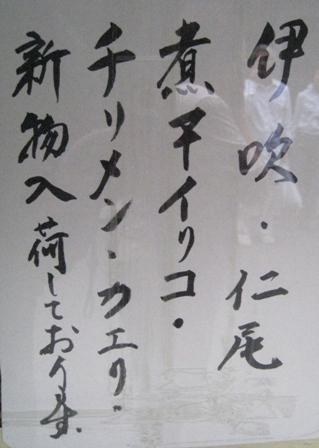 伊吹・仁尾
煮干イリコ・
チリメン・カエリ・
新物入荷しております。